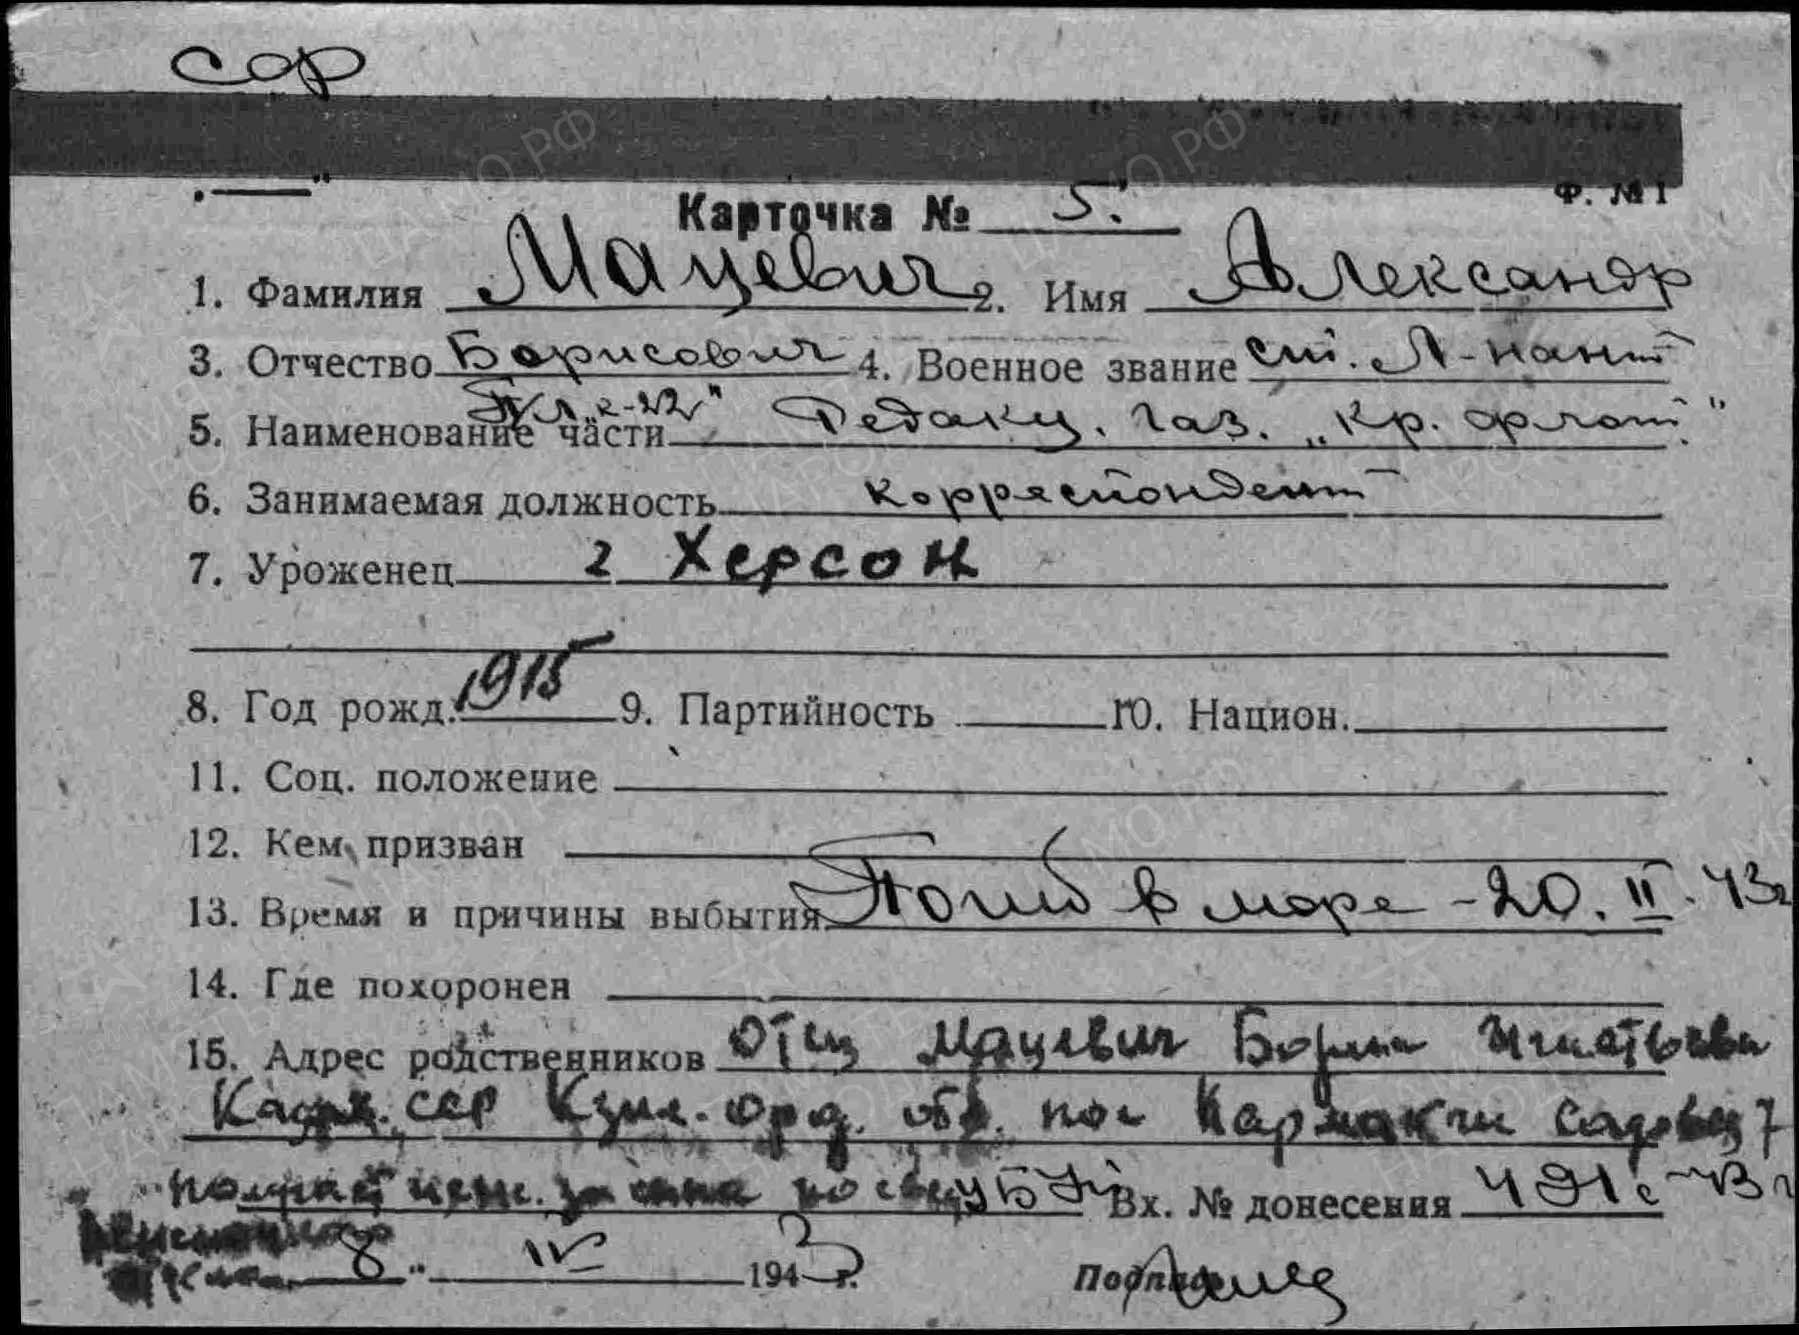 сф
Ф. № 1
Карточка № 5.
1. Фамилия Мацевич 2. Имя Александр
3. Отчество Борисович 4. Военное звание ст. л-нант
ПЛ „к-22"
5. Наименование части Редакц. газ. „Кр. флот."
6. Занимаемая должность корреспондент
7. Уроженец г Херсон
8. Год рожд. 1915 9. Партийность 10. Национ.
11. Соц. положение
12. Кем призван
13. Время и причины выбытия Погиб в море - 20. II. 43г
14. Где похоронен
15. Адрес родственников Отец Мацевич Борис Игнатьеви
Казах. ССР Кзыл-Орд. обл. пос Кармакчи 7
получает пенс. за сына по Вх. № донесения 491с-43г
8 " IV 1943 г. Подпись